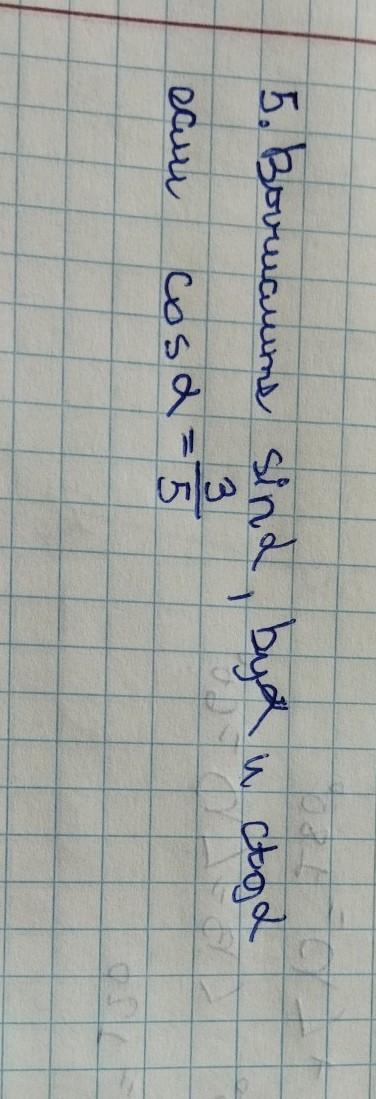 5. Вычислить sin α, tg α и ctg α
если cos α = 3/5